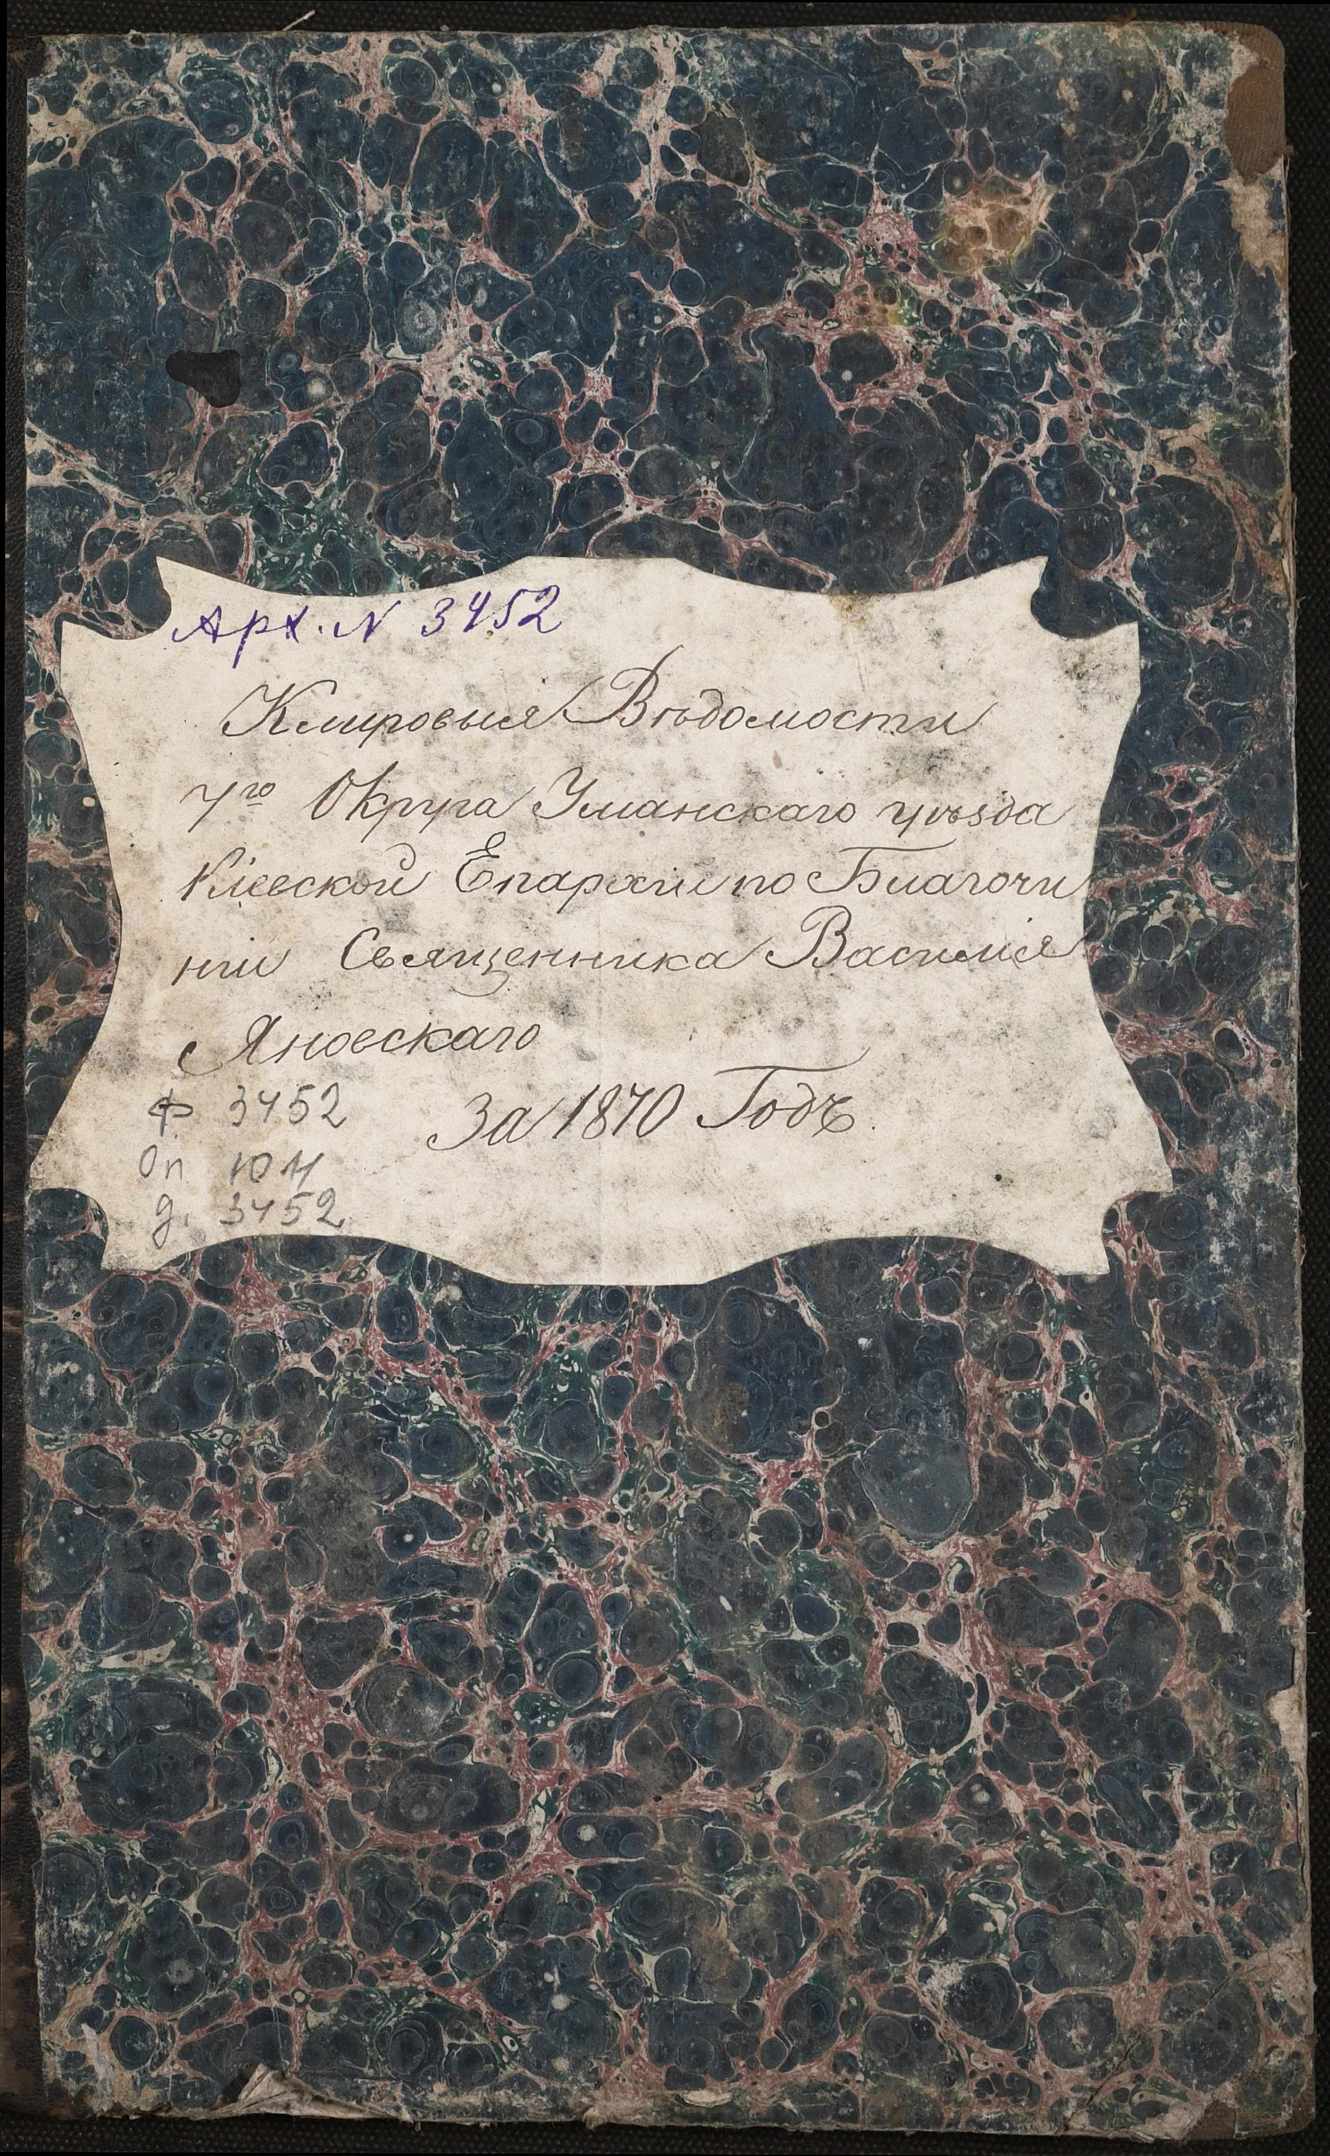 Арх. N 3452
Клировыя Вѣдомости
4го Округа Уманскаго уѣзда
Кіевской Епархіи по Благочи
ніи Священника Василія
Яновскаго
За 1870 Годъ.
ф 3452
Оп
д. 3452